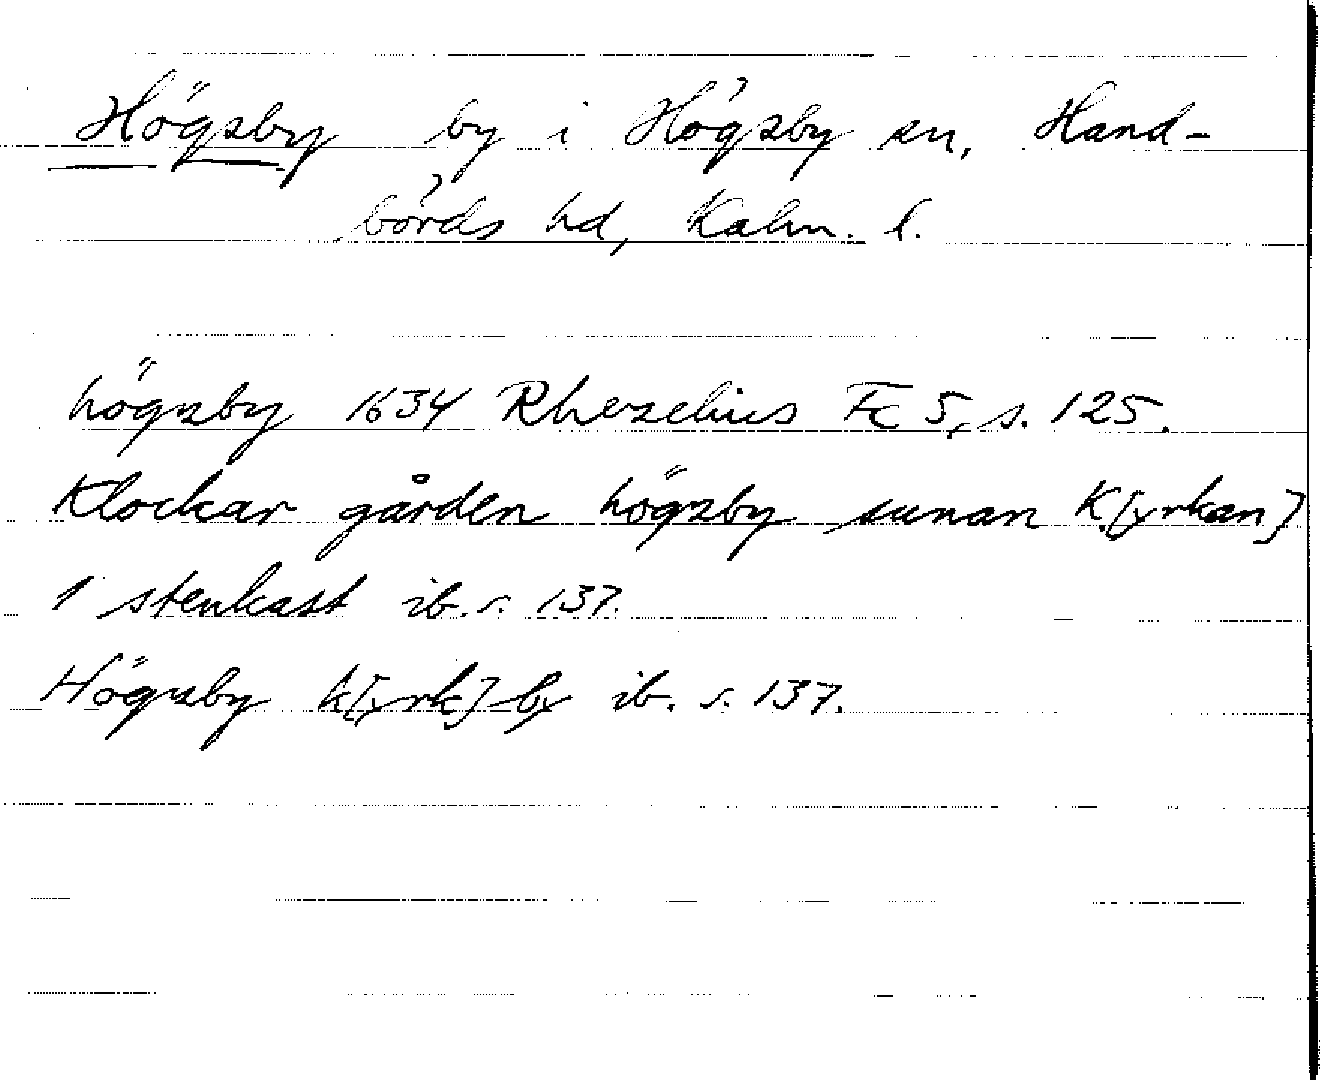 Högsby by i Högsby sn, Hand-
börds hd, Kalm. l.
högsby 1634 Rhezelius Fc 5, s. 125.
Klockar gården högsby sunan K[yrkan]
1 stenkast ib. s. 137.
Högsby k[yrk] by ib. s. 137.